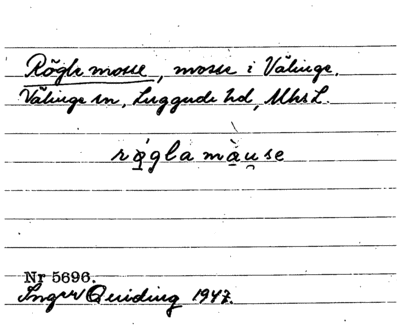 Rögle mosse, mosse i Välinge.
Välinge sn, Luggude hd, Mhs L.
rǫ́gla mà̱u̯se
Nr 5696.
Ingvar Quiding 1947.